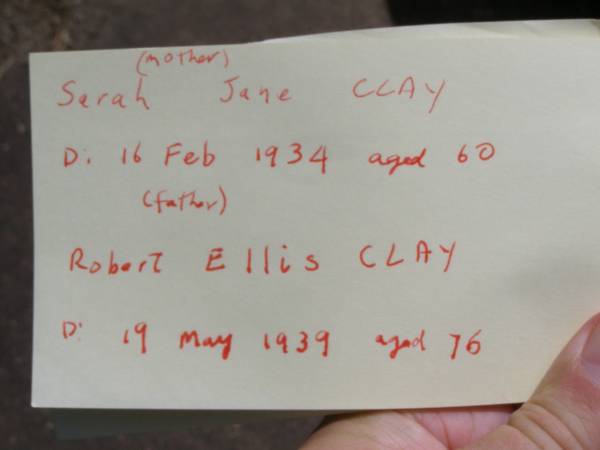 (mother)
Sarah Jane CLAY
D: 16 Feb 1934 aged 60
(father)
Robert Ellis CLAY
D: 19 May 1939 aged 76